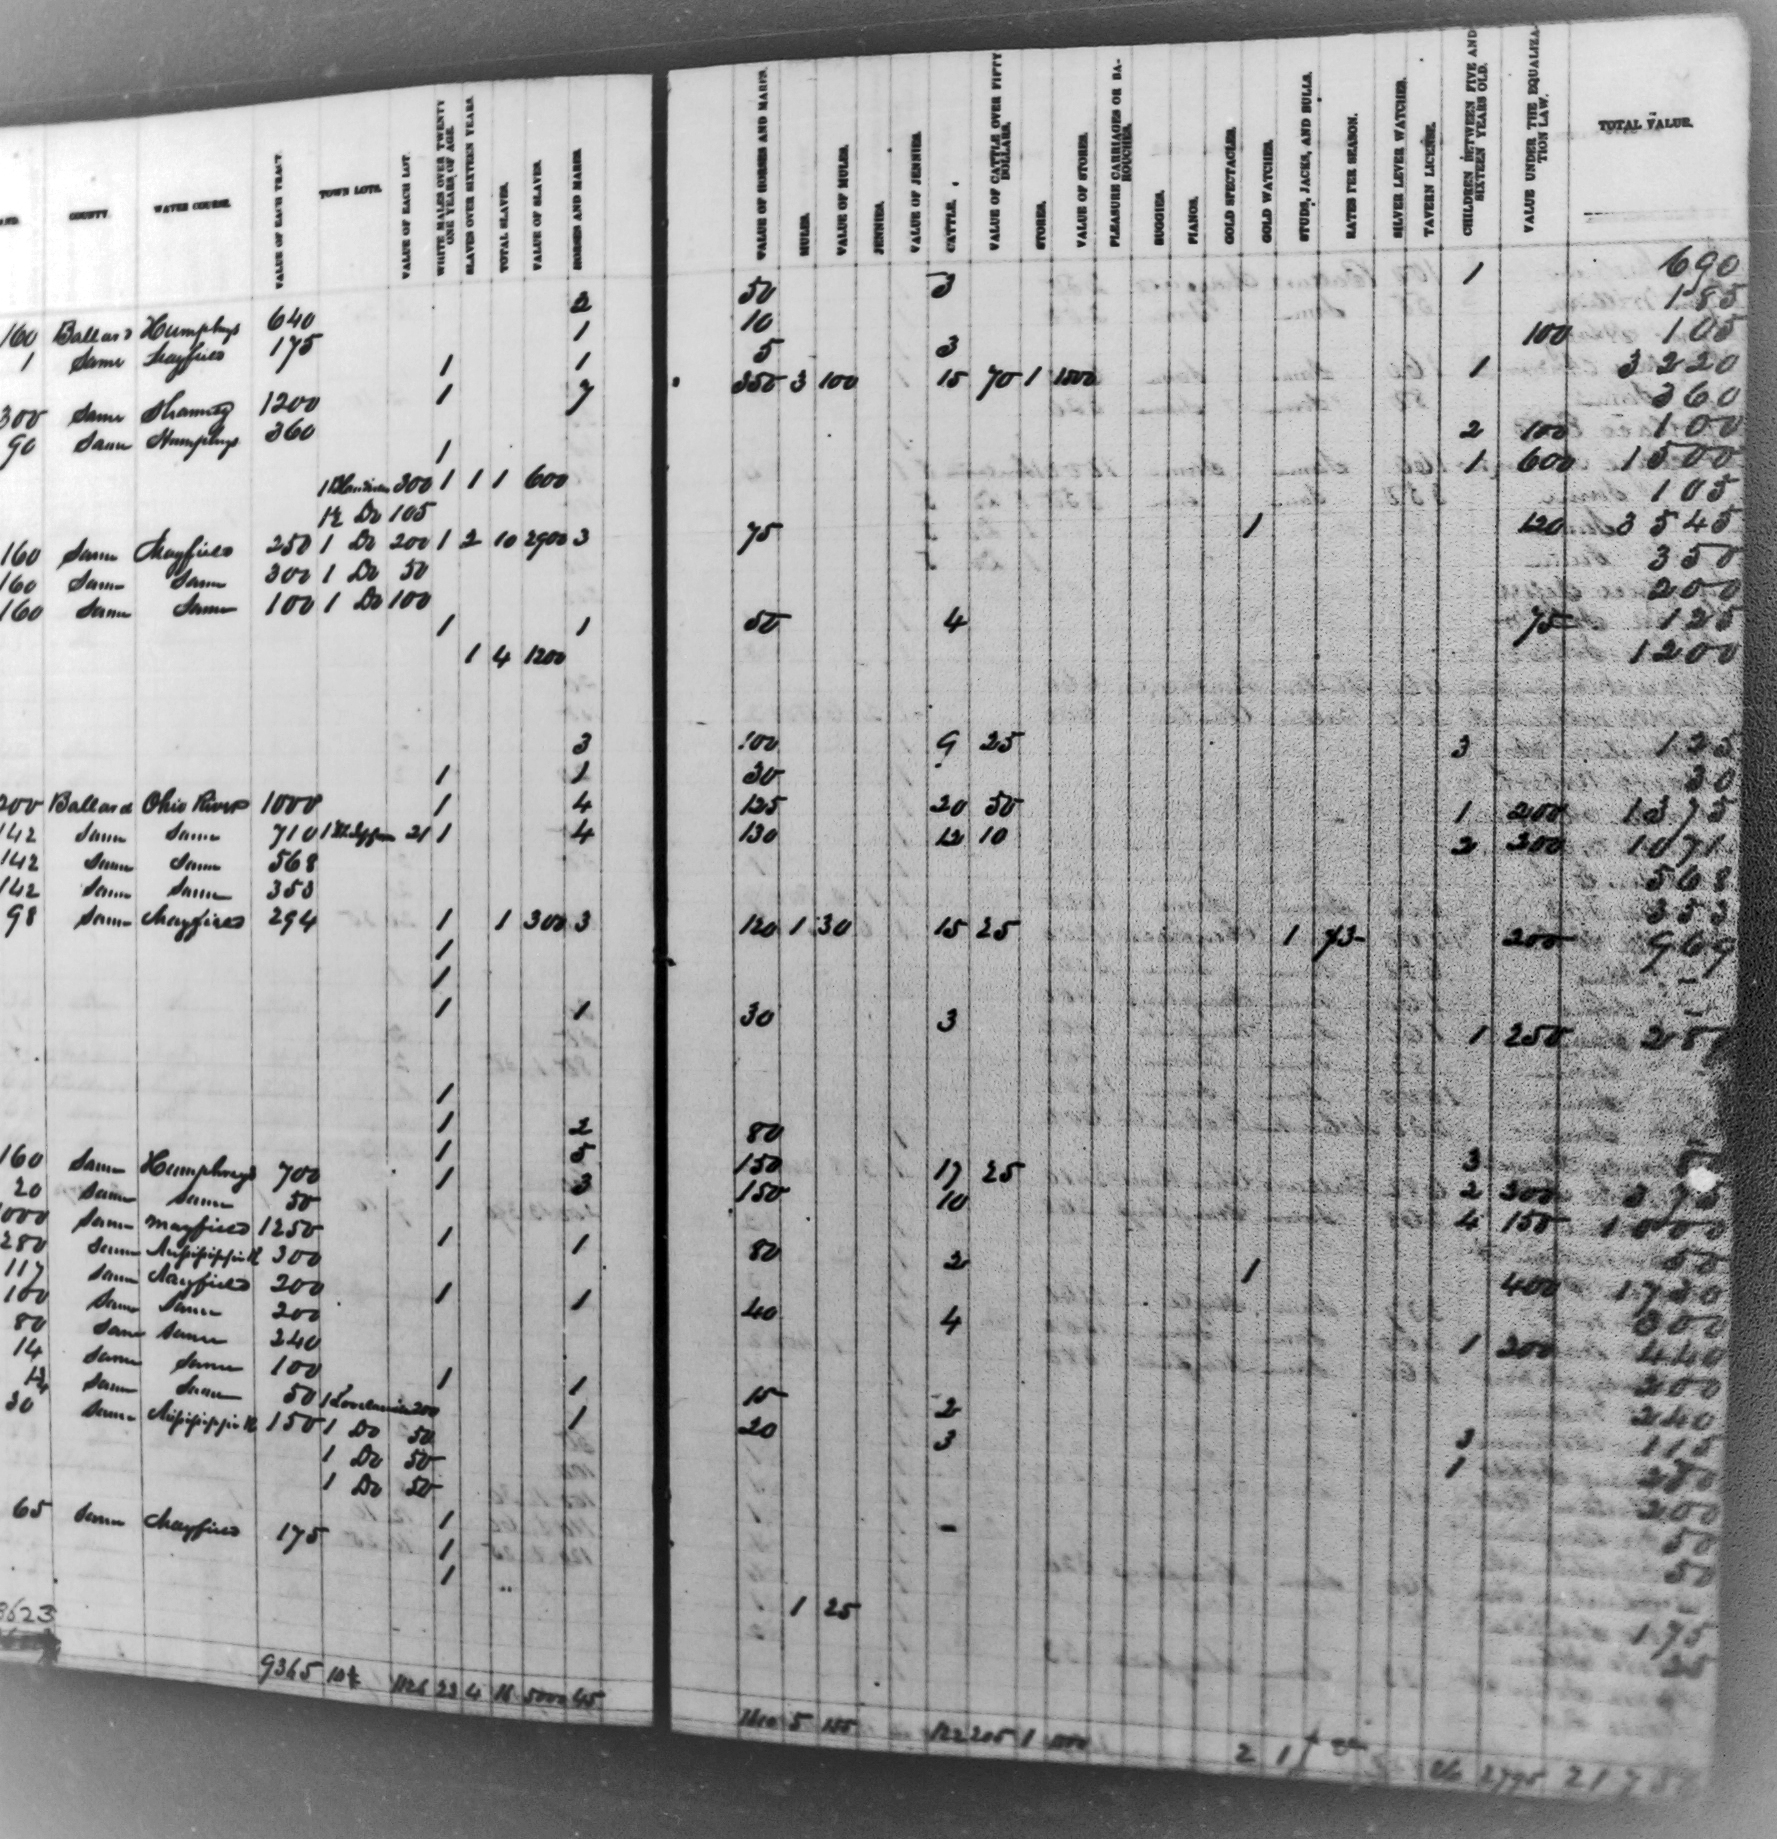 COUNTY.
WATER COURSE.
VALUE OF EACH TRACT.
TOWN LOTS.
VALUE OF EACH LOT.
WHITE MALES OVER TWENTY ONE YEARS OF AGE.
SLAVES OVER SIXTEEN YEARS.
TOTAL SLAVES.
VALUE OF SLAVES.
HORSES AND MARES.
VALUE OF HORSES AND MARES.
MULES.
VALUE OF MULES.
JENNIES.
VALUE OF JENNIES.
CATTLE.
VALUE OF CATTLE OVER FIFTY DOLLARS.
STORES.
VALUE OF STORES.
PLEASURE CARRIAGES OR BAROUCHES.
BUGGIES.
PIANOS.
GOLD SPECTACLES.
GOLD WATCHES.
STUDS, JACKS, AND BULLS.
RATES PER SEASON.
SILVER LEVER WATCHES.
TAVERN LICENSE.
CHILDREN BETWEEN FIVE AND SIXTEEN YEARS OLD.
VALUE UNDER THE EQUALIZATION LAW.
TOTAL VALUE.
160 Ballard Humphys 640 2 50 3 1 690
1 Same Mayfield 175 1 10 185
1 1 5 3 100 105
300 Same 1200 1 7 350 3 100 15 70 1 1500 1 3220
90 Same Humphys 360 360
1 2 100 100
1 300 1 1 1 600 1 600 1500
1½ Do 105 105
160 Same Mayfield 250 1 Do 200 1 2 10 2900 3 75 1 120 3545
160 Same Same 300 1 Do 50 350
160 Same Same 100 1 Do 100 200
1 1 50 4 75 125
1 4 1200 1200
3 100 9 25 3 125
1 1 30 30
200 Ballard Ohio River 1000 1 4 125 20 50 1 200 1375
142 Same Same 710 1 21 1 4 130 12 10 2 200 1071
142 Same Same 568 568
142 Same Same 353 353
98 Same Mayfield 294 1 1 300 3 120 1 30 15 25 1 200 969
1 -
1 -
1 1 30 3 1 250 280
1
1 2 80 3
160 Same Humphreys 700 1 5 150 17 25 2 300
20 Same Same 50 1 3 150 10 4 150
1000 Same Mayfield 1250 1 1 80 2 1 400 1730
280 Same Mississippi R 300 300
117 Same Mayfield 200 1 1 40 4 1 200 440
100 Same Same 200 200
80 Same Same 240 240
14 Same Same 100 1 1 15 2 3 115
Same Same 50 1 200 1 20 3 1
30 Same Mississippi R 150 1 Do 50 200
1 Do 50 50
1 Do 50 50
65 Same Mayfield 175 1 - 175
1
1
1 25 25
9365 10½ 1126 23 4 16 5000 45 5 155 122 205 1 2 1 26 2795